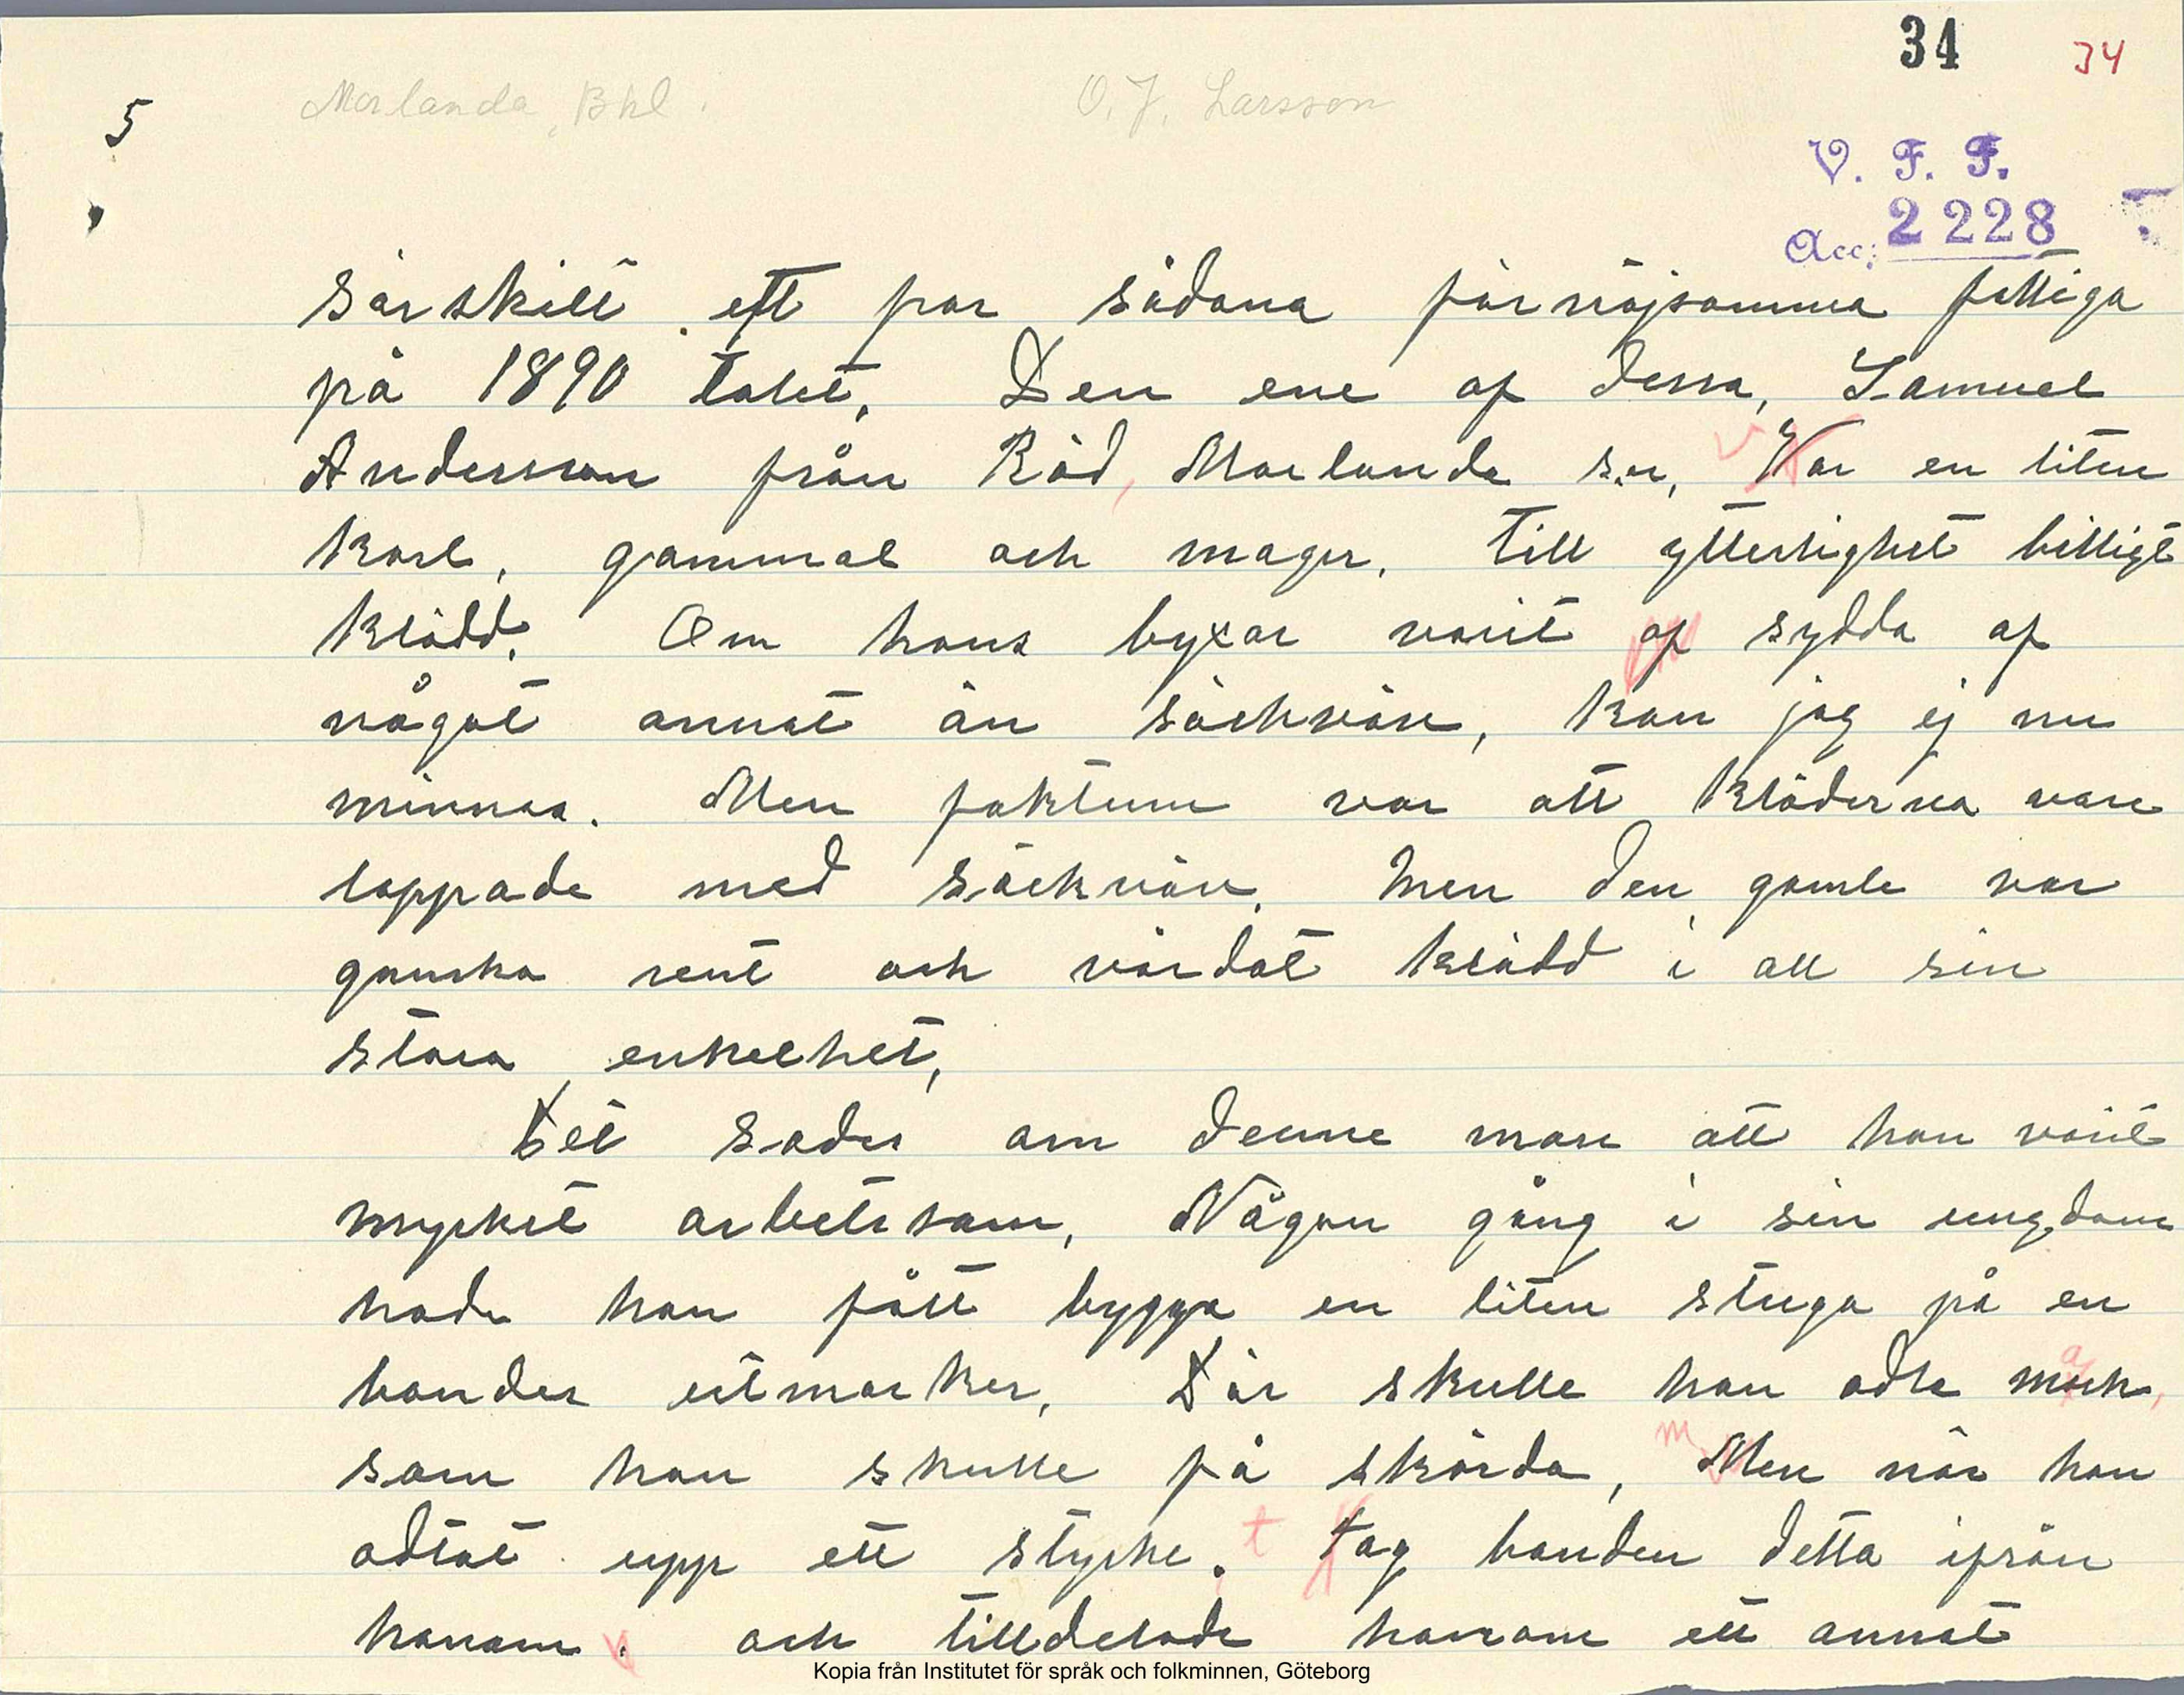 34 34
5 Morlanda, Bhl. O. J. Larsson
V. F. F.
Acc: 2228
särskilt ett par sådana förnöjsamma fattiga
på 1890 talet. Den ene af dessa, Samuel
Andersson från Röd, Morlanda sn, Var en liten
karl, gammal och mager. till ytterlighet billigt
klädd. Om hans byxor varit af sydda af
något annat än säckväv, kan jag ej nu
minnas. Men faktum var att kläderna vare
lappade med säckväv. Men den gamle var
ganska rent och vårdat klädd i all sin
stora enkelhet,
Det sades om denne man att han varit
mycket arbetssam, Någon gång i sin ungdom
hade han fått bygga en liten stuga på en
bondes utmarker, Där skulle han odla mark,
som han skulle få skörda, Men när han
odlat upp ett stycke. tog bonden detta ifrån
honom. och tilldelade honom ett annat
Kopia från Institutet för språk och folkminnen, Göteborg